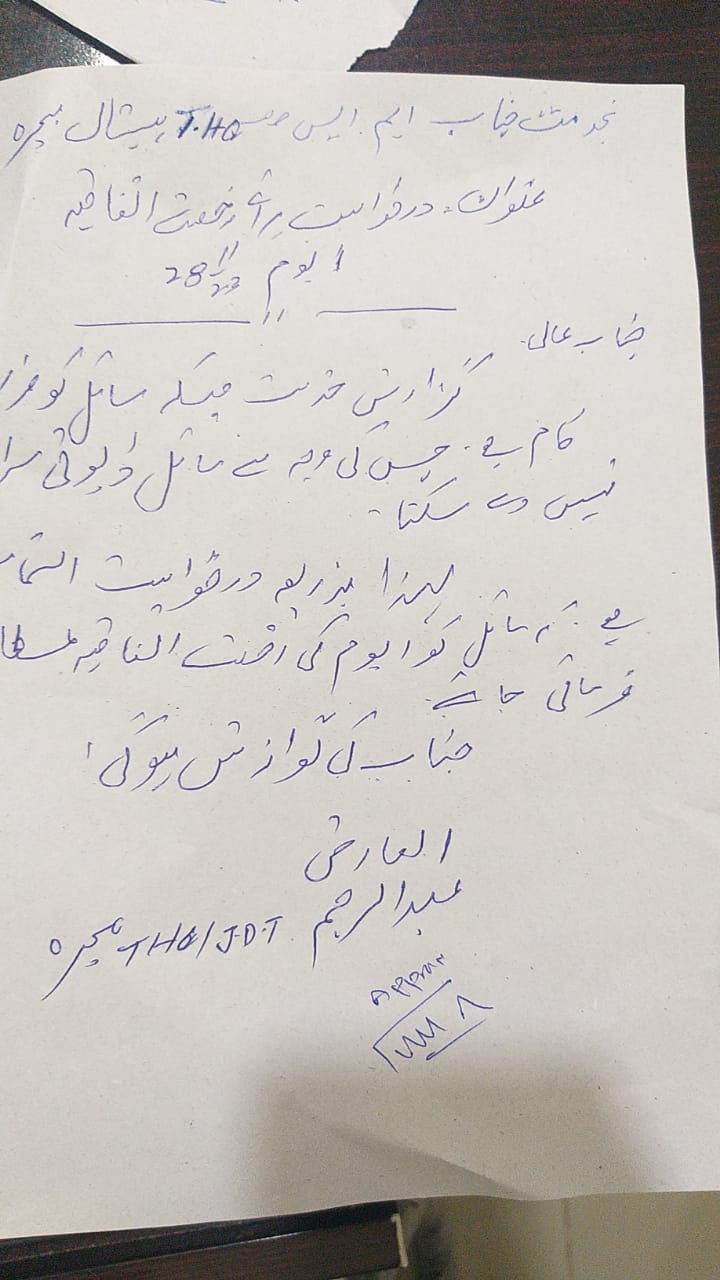 بخدمت جناب ایم ایس صاحب THQ ہسپتال ہجیرہ
عنوان: درخواست برائے رخصت اتفاقیہ
1 یوم 28/11/23
جناب عالی۔
گزارش خدمت ہیکہ سائل کو
کام ہے۔ جس کی وجہ سے سائل ڈیوٹی
نہیں دے سکتا۔
لہذا بذریعہ درخواست
ہے۔ کہ سائل کو 1 یوم کی رخصت اتفاقیہ عطا
فرمائی جائے۔
جناب کی نوازش ہوگی۔
العارض
عبدالرحیم J.D.T / THQ ہجیرہ